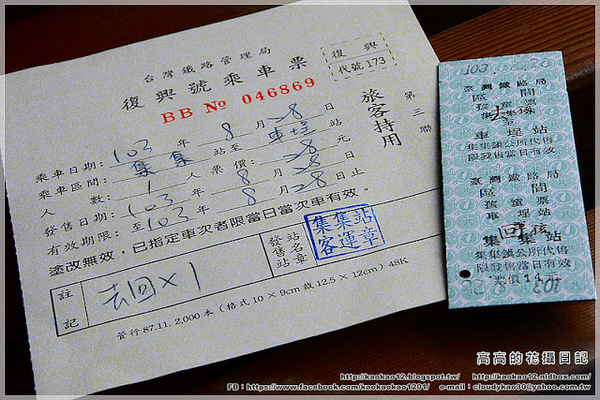 台灣鐵路管理局
復興號乘車票
復興
代號173
BB No 046869
旅客持用
第三聯
乘車日期：103年8月28日
乘車區間：集集站至車埕站
人數：1人票價：28元
發售日期：103年8月28日
有效期限：至103年8月28日止
塗改無效，已指定車次者限當日當次車有效。
發售站
站名章
集集站
客運章
註記
去回×1
管行87.11.2,000本（格式10×9cm裁12.5×12cm）48K
臺灣鐵路局
區間
去孩
孩童票
集集
至
車埕站
集集鎮公所代售
限發售當日有效
臺灣鐵路局
區間
孩童票
車埕站
回孩
集集站
集集鎮公所代售
限發售當日有效
票價14
高高的花攝日記
http://kaokao12.blogspot.tw/ http://kaokao12.nidbox.com/
FB：https://www.facebook.com/kaokao1201/ e-mail：cloudykao30@yahoo.com.tw